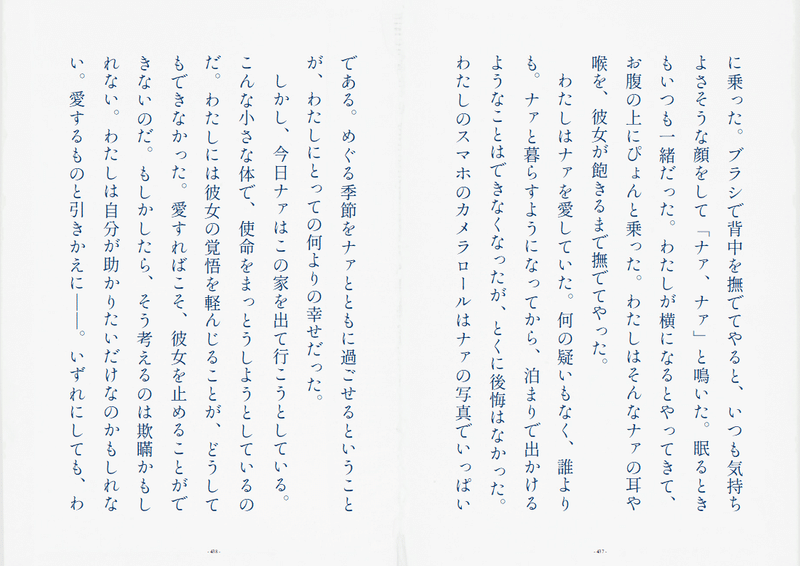 に乗った。ブラシで背中を撫でてやると、いつも気持ち
よさそうな顔をして「ナァ、ナァ」と鳴いた。眠るとき
もいつも一緒だった。わたしが横になるとやってきて、
お腹の上にぴょんと乗った。わたしはそんなナァの耳や
喉を、彼女が飽きるまで撫でてやった。
わたしはナァを愛していた。何の疑いもなく、誰より
も。ナァと暮らすようになってから、泊まりで出かける
ようなことはできなくなったが、とくに後悔はなかった。
わたしのスマホのカメラロールはナァの写真でいっぱい
である。めぐる季節をナァとともに過ごせるということ
が、わたしにとっての何よりの幸せだった。
しかし、今日ナァはこの家を出て行こうとしている。
こんな小さな体で、使命をまっとうしようとしているの
だ。わたしには彼女の覚悟を軽んじることが、どうして
もできなかった。愛すればこそ、彼女を止めることがで
きないのだ。もしかしたら、そう考えるのは欺瞞かもし
れない。わたしは自分が助かりたいだけなのかもしれな
い。愛するものと引きかえに——。いずれにしても、わ